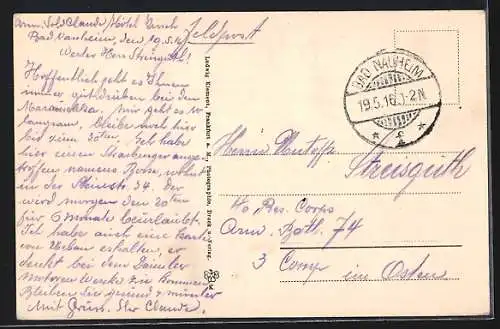 Arm. Sold Claude, Hôtel
Bad Nauheim, den 19.5.16
Feldpost
Werter Herr Streisguth!
Hoffentlich geht es Ihnen
immer gut drüben bei den
mir geht es so
langsam, bleibe noch hier
bis zum 20ten. Ich habe
hier einen Strassburger ange
troffen namens Born, wohnt
in der 34. der
wird morgen den 20ten
für 6 Monate beurlaubt.
Ich habe auch eine Karte
von Urban erhalten, er
denkt bei den Daimler
Motoren Werke zu kommen
Bleiben Sie gesund & munter
Mit Gruss. Ihr Claude.
Ludwig Klement, Frankfurt a. M., Photographie, Druck u. Verlag.
BAD NAUHEIM
19.5.16. 1-2N
* f *
Herrn
Streisguth
4o Res. Corps
Arm. Batl. 74
3 Comp im Osten